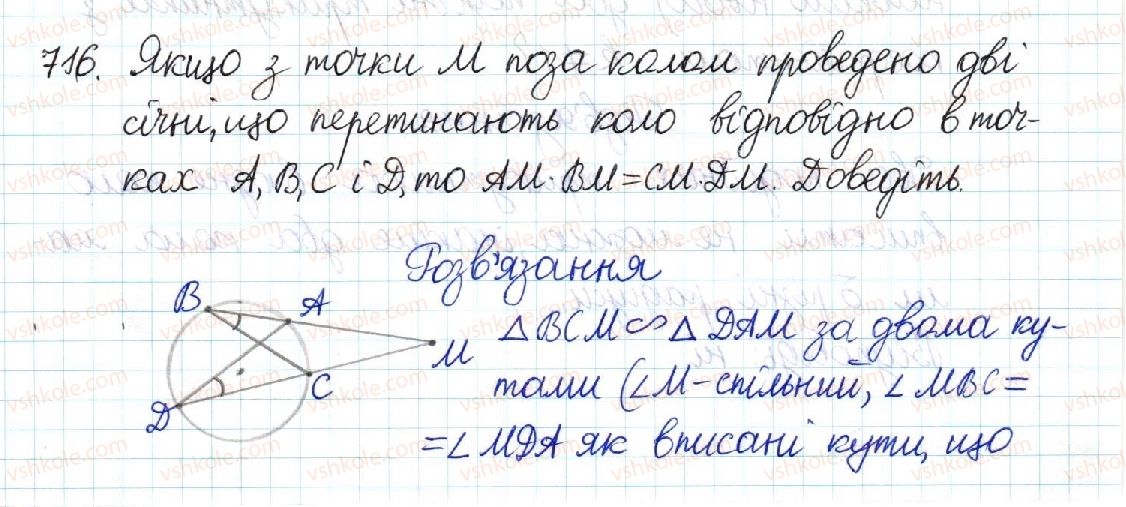 716. Якщо з точки М поза колом проведено дві
січні, що перетинають коло відповідно в точ-
ках А, В, С і D, то АМ·ВМ=СМ·DМ. Доведіть.
Розв'язання
В
А
М
С
D
△ВСМ∽△DАМ за двома ку-
тами (∠М-спільний, ∠МВС=
=∠МDА як вписані кути, що